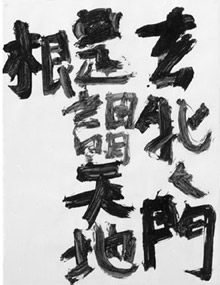 玄牝之門
是謂天地
根